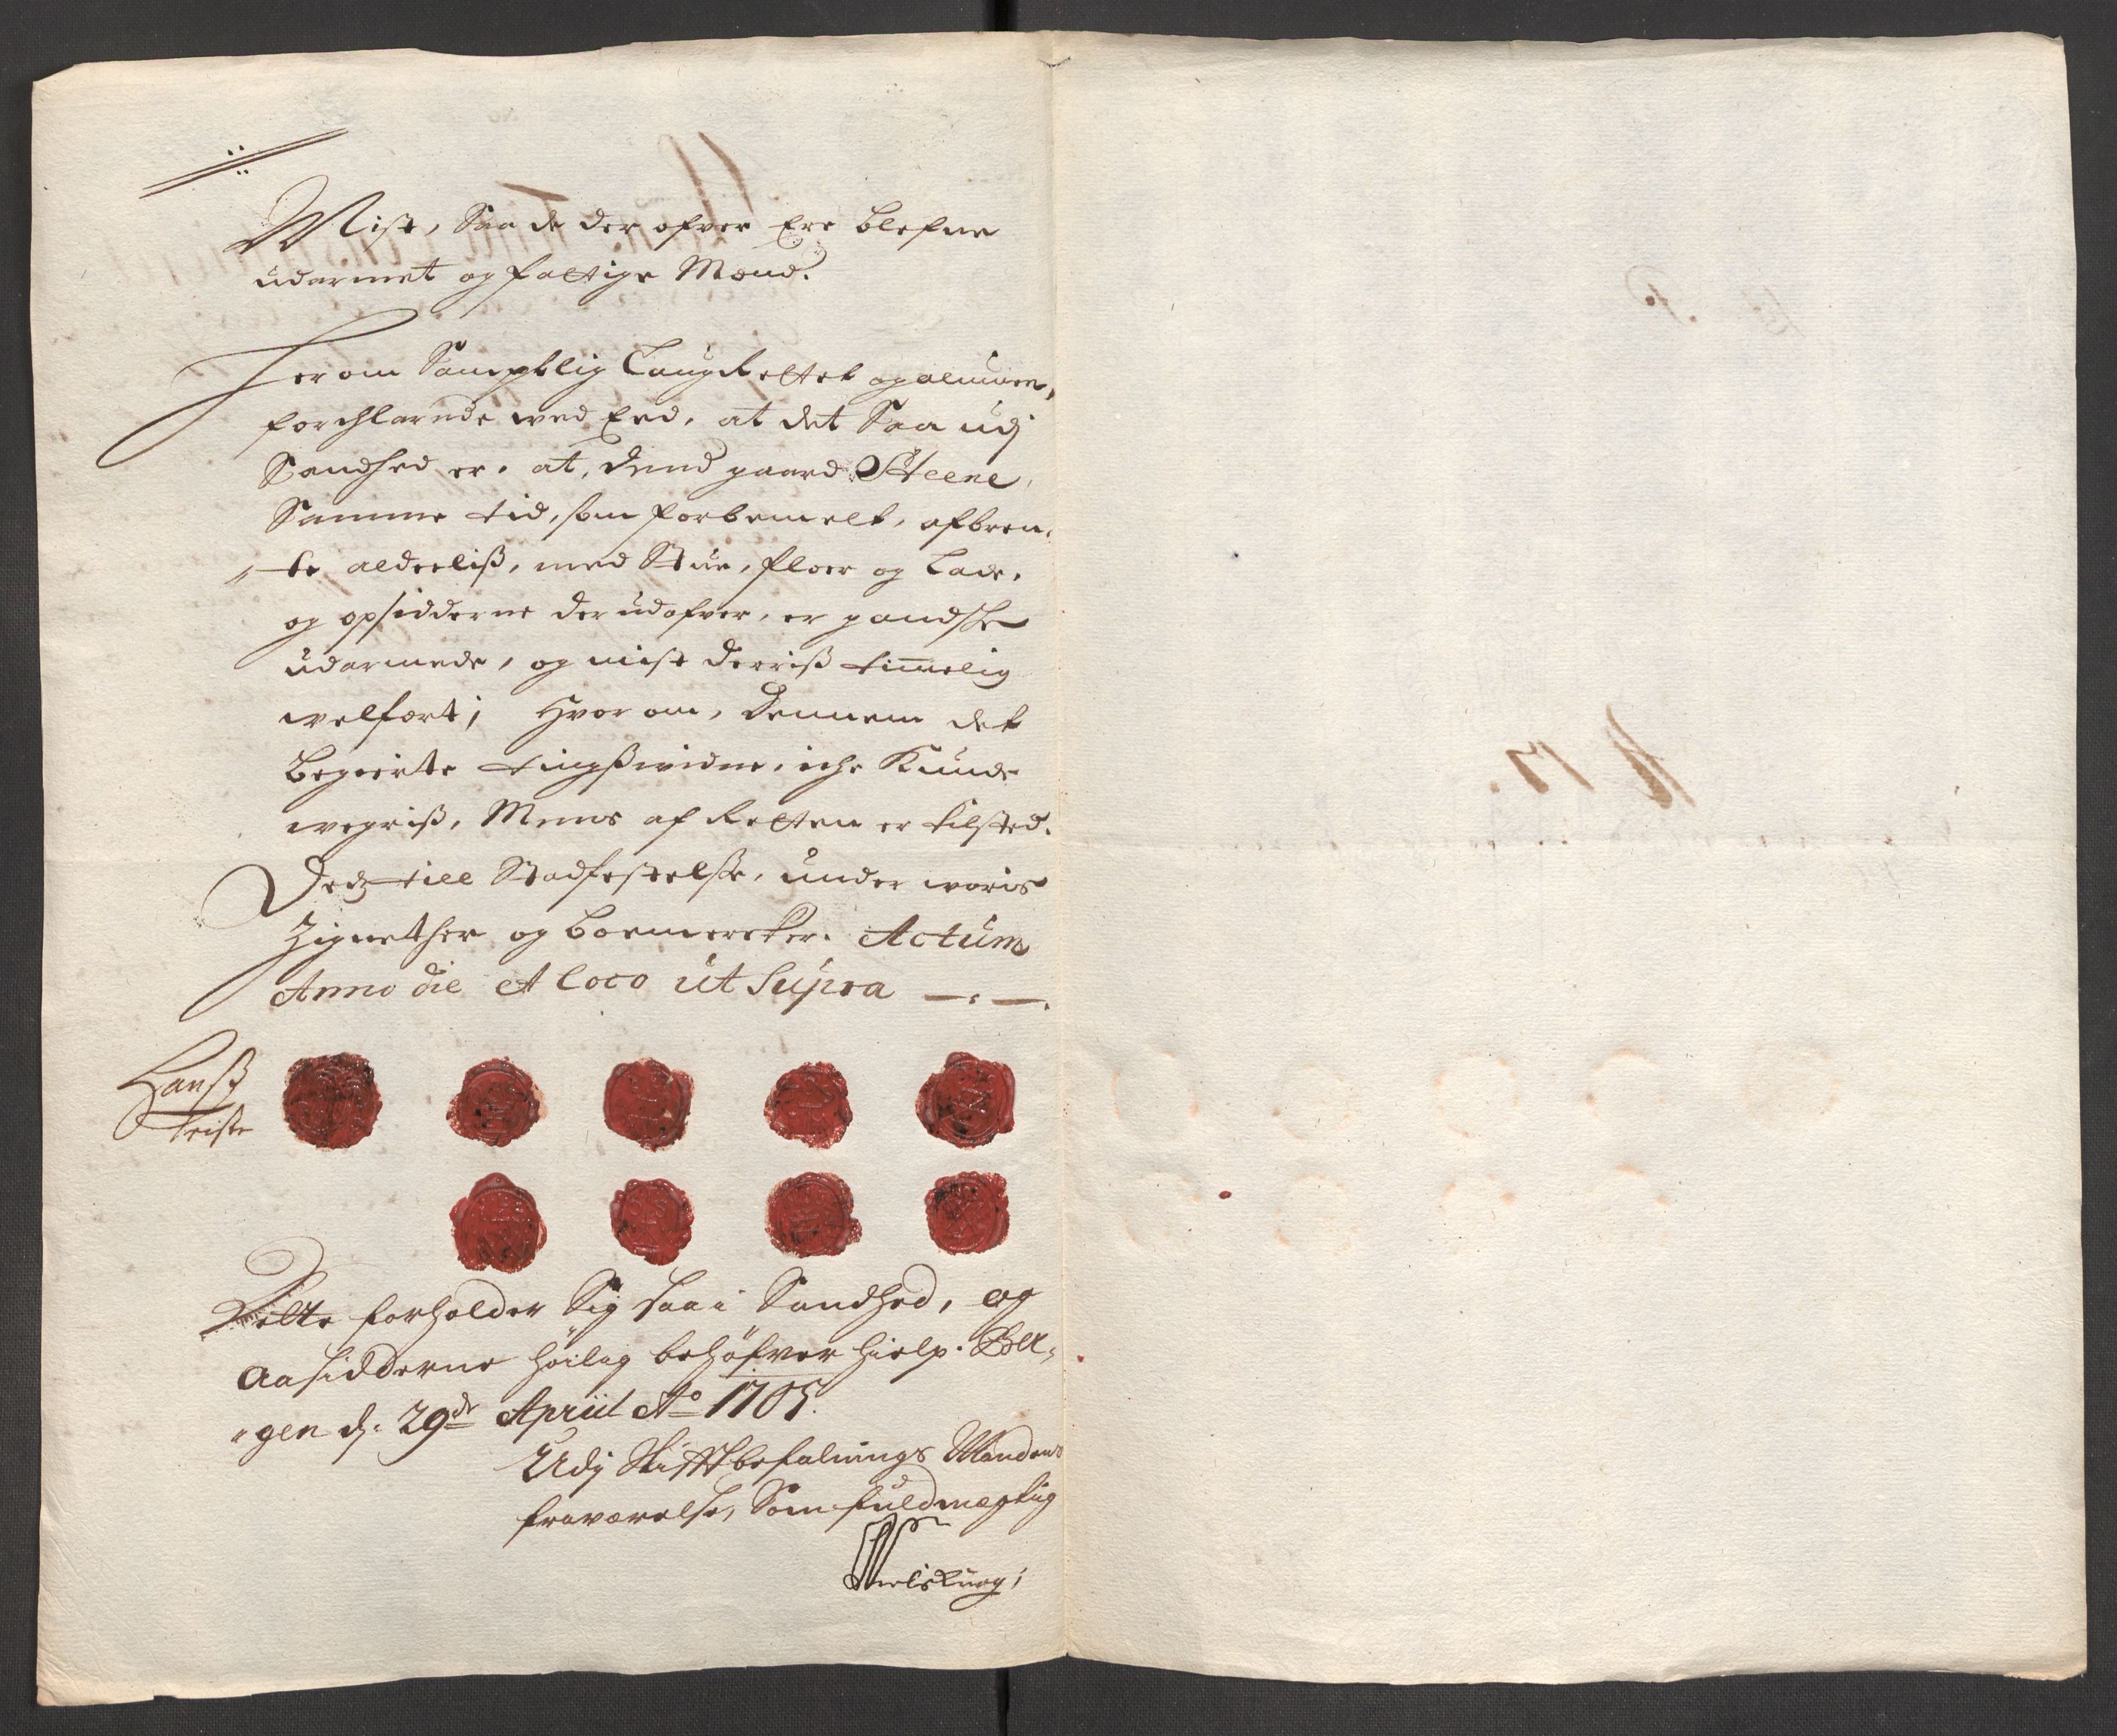 Mist, Saa de der ofver Ere blefne
udarmet og fattige Mænd.
Her om Samptlig Laugrettet og almuen,
forchlarede wed Eed, at det Saa udj
Sandhed er, at, dend gaard Steene,
Samme tid, som forbemelt, afbren¬
te alderliß, med Stue, floer og Lade,
og opsidderne der udofver, er gandske
udarmede, og mist derriß timmelig
welfært; Hvor om, Dennem det
begierte tingßwidne, iche Kunde
wegriß, Mens af Retten er tilsted.
Detz till Stadfestelsse, under woris
Zignether og boemercker. Actum
Anno die et loco ut Supra
Hanß
Teiste
Dette forholder Sig saa i Sandhed, og
Aasidderne höilig behöfver hielp. Ber¬
gen d: 29de Apriil Ao 1705.
Udj Stiftbefalnings Mandens
fraværelse, Som fuldmægtig
Niels Knag;
N 17.